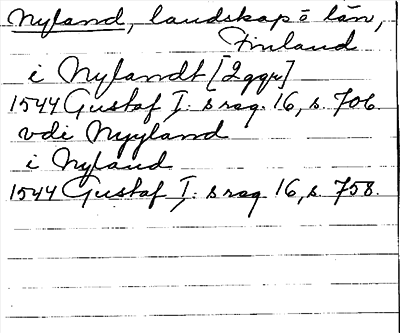 Nyland, landskap o län,
Finland
i Nylandt [2ggr]
1544 Gustaf I: s reg. 16, s. 706.
vdi Nyyland
i Nyland
1544 Gustaf I: s reg. 16, s. 758.